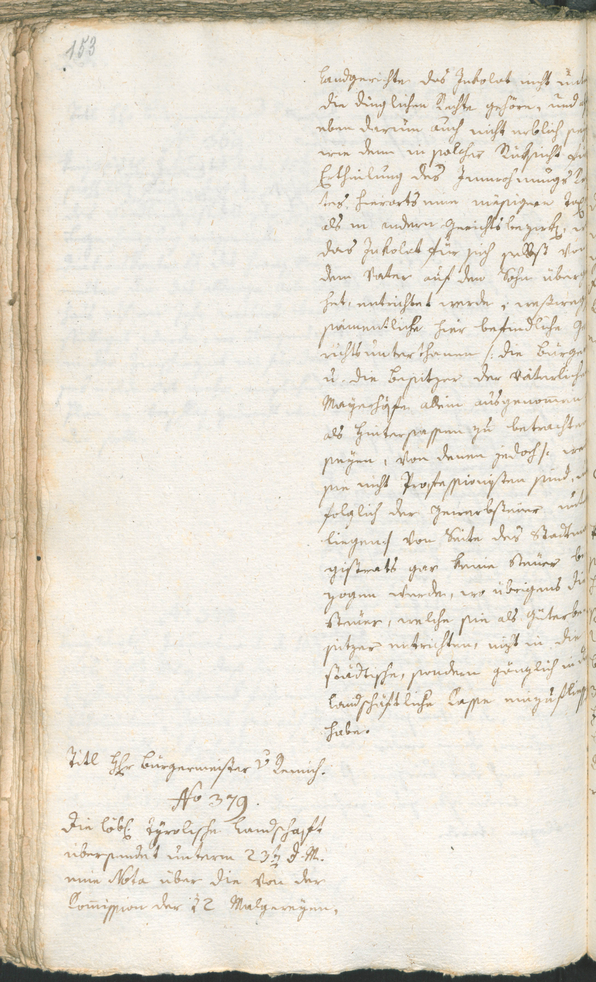 153
Landgerichte das Inkolat nicht unter
die dinglichen Rechte gehöre, und
eben darum auch nicht erblich sey
wie denn in solcher Rücksicht für
Ertheilung des
hierorts eine mässigere Tax
als in andern Gerichtsbezirk,
das Inkolat für sich selbst von
dem Vater auf den Sohn über
het, entrichtet werde,
sämentliche hier befindliche Ge
richtsunterthanen /: die Bürger
u. die Besitzer der väterlichen
Mayerhöfe allein ausgenommen
als Hintersassen zu betrachten
seyen, von denen jedoch
sie nicht Professionisten sind,
folglich der Gewerbsteuer unter
liegend von Seite des Stadtma
gistrats gar keine Steuer be
zogen werde, wo übrigens die
Steuer, welche sie als Güterbe
sitzer entrichten, nicht in die
städtische, sondern gänzlich in die
Landschäftliche Cassa einzufliessen
habe.
Titl Hr Bürgermeister v
No 379.
Die löbl. Tyrolische Landschaft
übersendet unterm 23t d. M.
eine Nota über die von der
Comission der 12 Malgereyen,